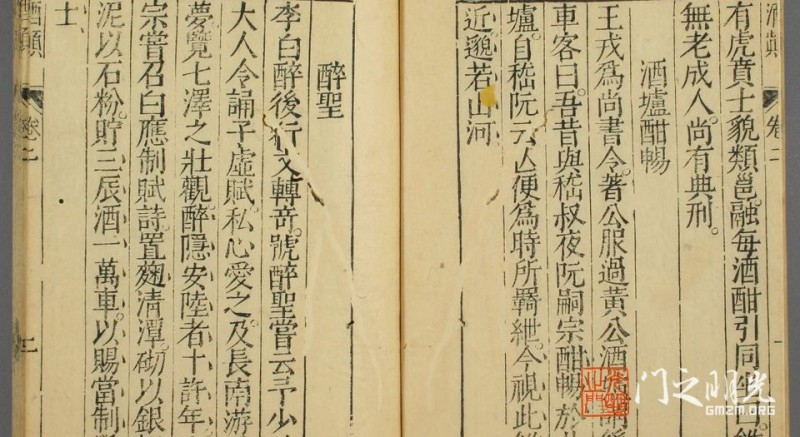 酒顛 卷二 一
有虎賁士貌類邕。融每酒酣引同坐曰
無老成人尚有典刑。
酒壚酣暢
王戎為尚書令。著公服過黃公酒
車客曰。吾昔與嵇叔夜阮嗣宗酣暢於
壚。自嵇阮云亾便為時所羈紲。今視此
近邈若山河
醉聖
李白醉後行文轉奇。號醉聖。嘗云予少
大人令誦子虛賦。私心愛之。及長南游
夢覽七澤之壯觀。醉隱安陸者十許年
宗嘗召白應制賦詩。置麴清潭。砌以銀
泥以石粉。貯三辰酒一萬車。以賜當制
士。
酒顛 卷二 二
光明之门
GMZM.ORG